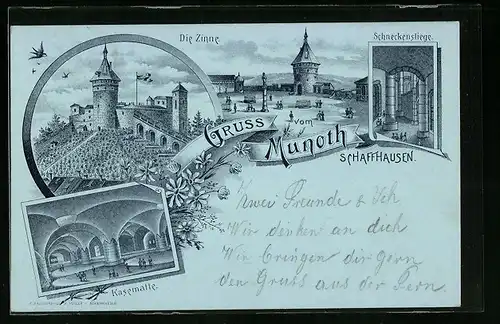 Die Zinne.
Schneckenstiege.
GRUSS vom Munoth
SCHAFFHAUSEN.
Zwei Freunde & Ich
Wir dinken an dich
Wir bringen dir gern
den Gruss aus der Fern
Kasematte.